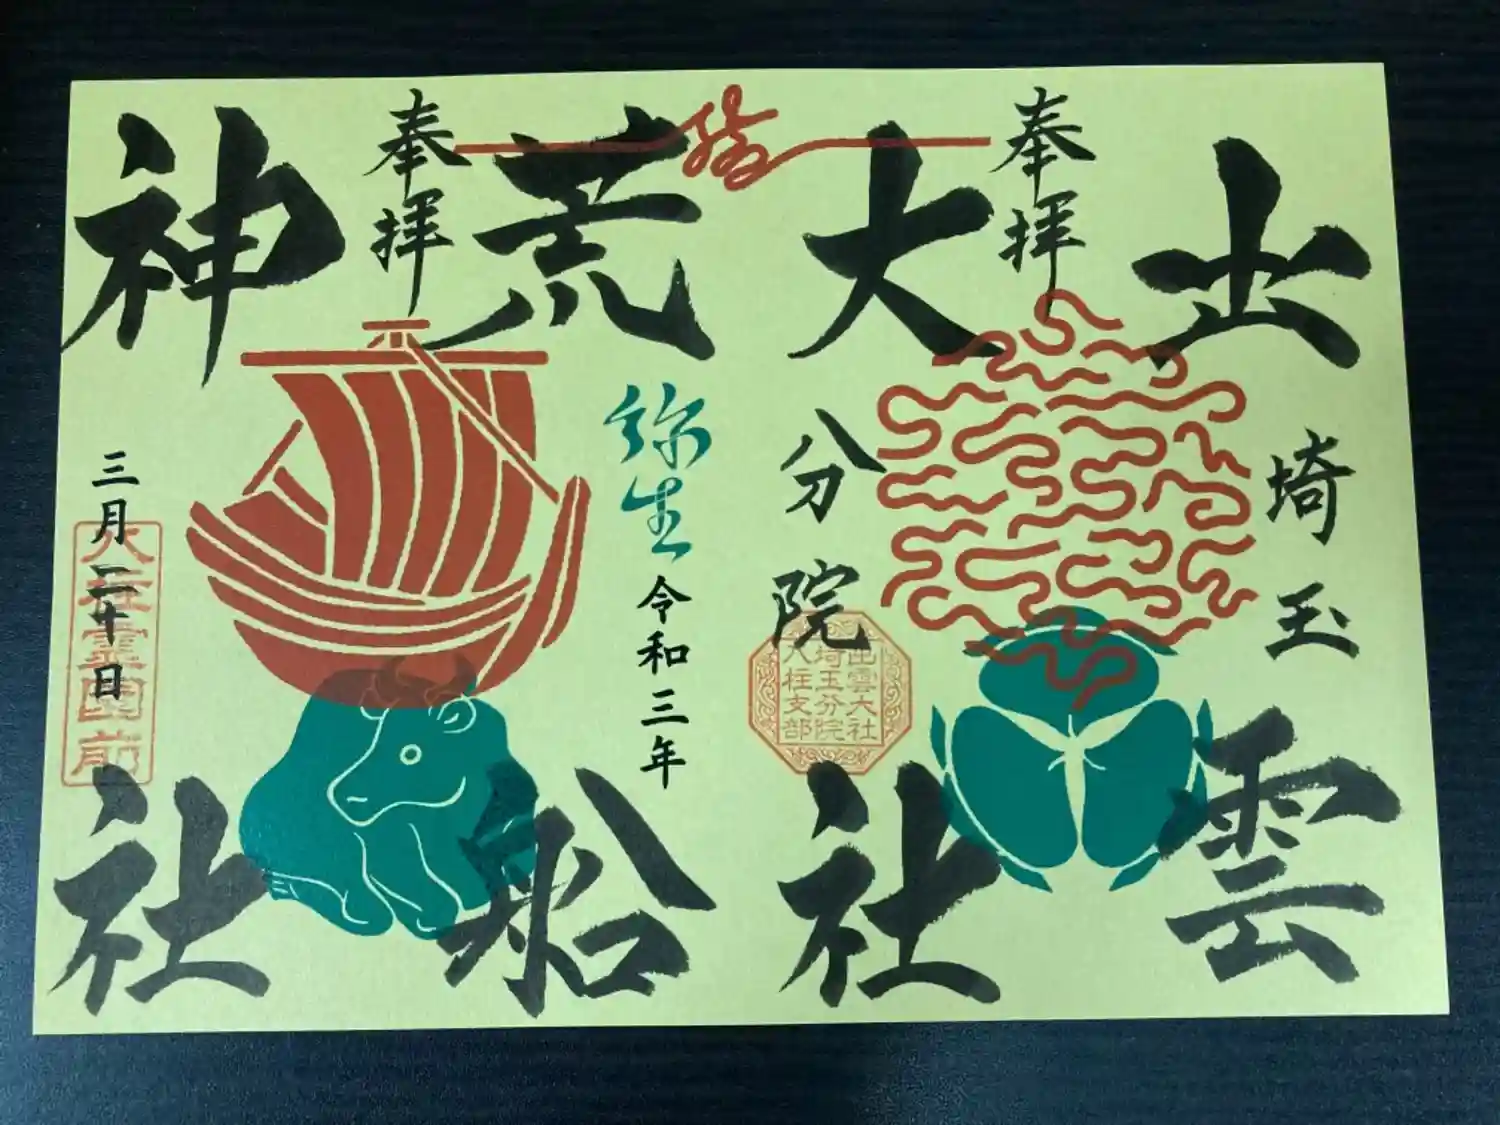 出雲
埼玉
奉拝
大社
分院
出雲大社
埼玉分院
八柱支部
荒船
弥生
令和三年
奉拝
神社
三月二十日
八柱霊園前